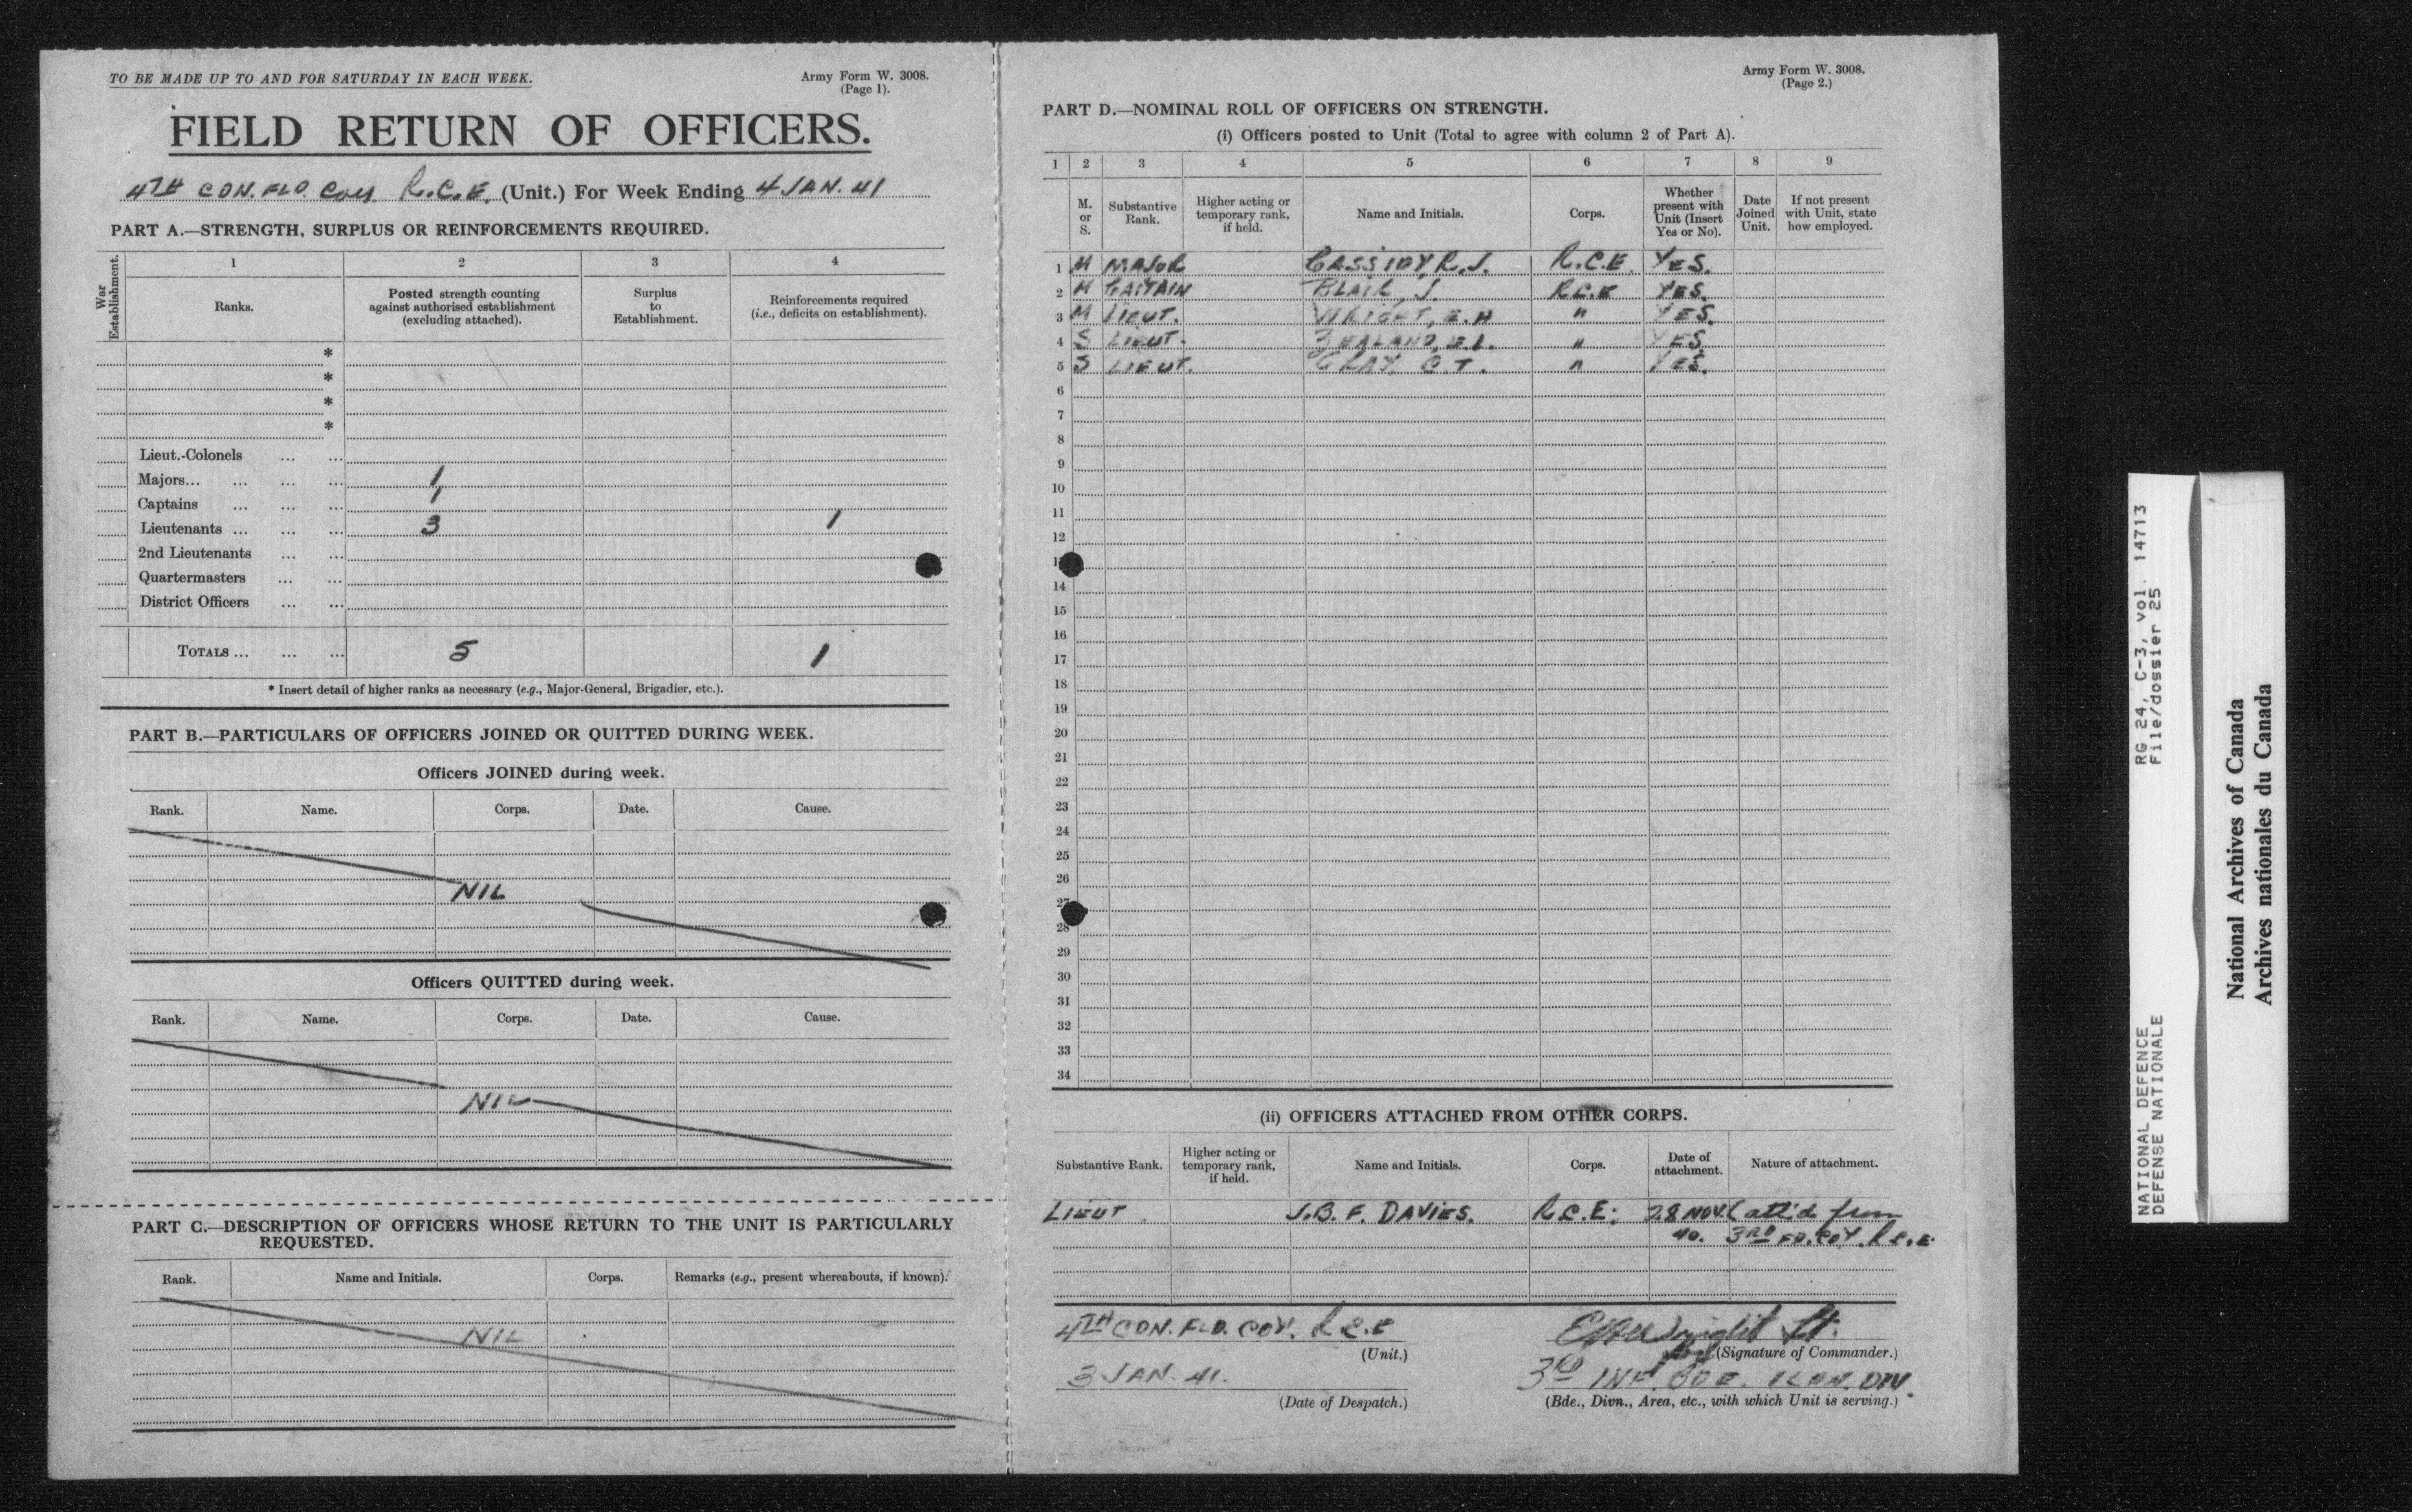 TO BE MADE UP TO AND FOR SATURDAY IN EACH WEEK.
Army Form W. 3008.
(Page 1).
FIELD RETURN OF OFFICERS.
4TH CDN. FLD. COY. R.C.E. (Unit.) For Week Ending 4 JAN. 41
PART A.—STRENGTH, SURPLUS OR REINFORCEMENTS REQUIRED.
War Establishment.
1 2 3 4
Ranks.
Posted strength counting
against authorised establishment
(excluding attached).
Surplus
to
Establishment.
Reinforcements required
(i.e., deficits on establishment).
*
*
*
*
Lieut.-Colonels ... ...
Majors... ... ... ... 1
Captains ... ... ... 1
Lieutenants ... ... ... 3 1
2nd Lieutenants ... ...
Quartermasters ... ...
District Officers ... ...
TOTALS ... ... ... 5 1
* Insert detail of higher ranks as necessary (e.g., Major-General, Brigadier, etc.).
PART B.—PARTICULARS OF OFFICERS JOINED OR QUITTED DURING WEEK.
Officers JOINED during week.
Rank. Name. Corps. Date. Cause.
NIL
Officers QUITTED during week.
Rank. Name. Corps. Date. Cause.
NIL
PART C.—DESCRIPTION OF OFFICERS WHOSE RETURN TO THE UNIT IS PARTICULARLY
REQUESTED.
Rank. Name and Initials. Corps. Remarks (e.g., present whereabouts, if known).
NIL
Army Form W. 3008.
(Page 2.)
PART D.—NOMINAL ROLL OF OFFICERS ON STRENGTH.
(i) Officers posted to Unit (Total to agree with column 2 of Part A).
1 2 3 4 5 6 7 8 9
M.
or
S.
Substantive
Rank.
Higher acting or
temporary rank,
if held.
Name and Initials.
Corps.
Whether
present with
Unit (Insert
Yes or No).
Date
Joined
Unit.
If not present
with Unit, state
how employed.
1 M MAJOR CASSIDY, R.J. R.C.E. YES.
2 M CAPTAIN BLAIR, J. R.C.E YES.
3 M LIEUT. WRIGHT, E.H " YES.
4 S LIEUT. ZEALAND, E.L. " YES
5 S LIEUT. GRAY, C.T. " YES.
6
7
8
9
10
11
12
14
15
16
17
18
19
20
21
22
23
24
25
26
27
28
29
30
31
32
33
34
(ii) OFFICERS ATTACHED FROM OTHER CORPS.
Substantive Rank.
Higher acting or
temporary rank,
if held.
Name and Initials.
Corps.
Date of
attachment.
Nature of attachment.
LIEUT. J.B.F. DAVIES. R.C.E. 28 NOV. (att'd from
40. 3RD FD. COY. R.C.E.
4TH CDN. FLD. COY. R.C.E
(Unit.)
3 JAN. 41.
(Date of Despatch.)
EHWright Lt.
(Signature of Commander.)
3RD INF. BDE. 1 CDN. DIV.
(Bde., Divn., Area, etc., with which Unit is serving.)
NATIONAL DEFENCE RG 24, C-3, vol. 14713
DEFENSE NATIONALE File/dossier 25
National Archives of Canada
Archives nationales du Canada